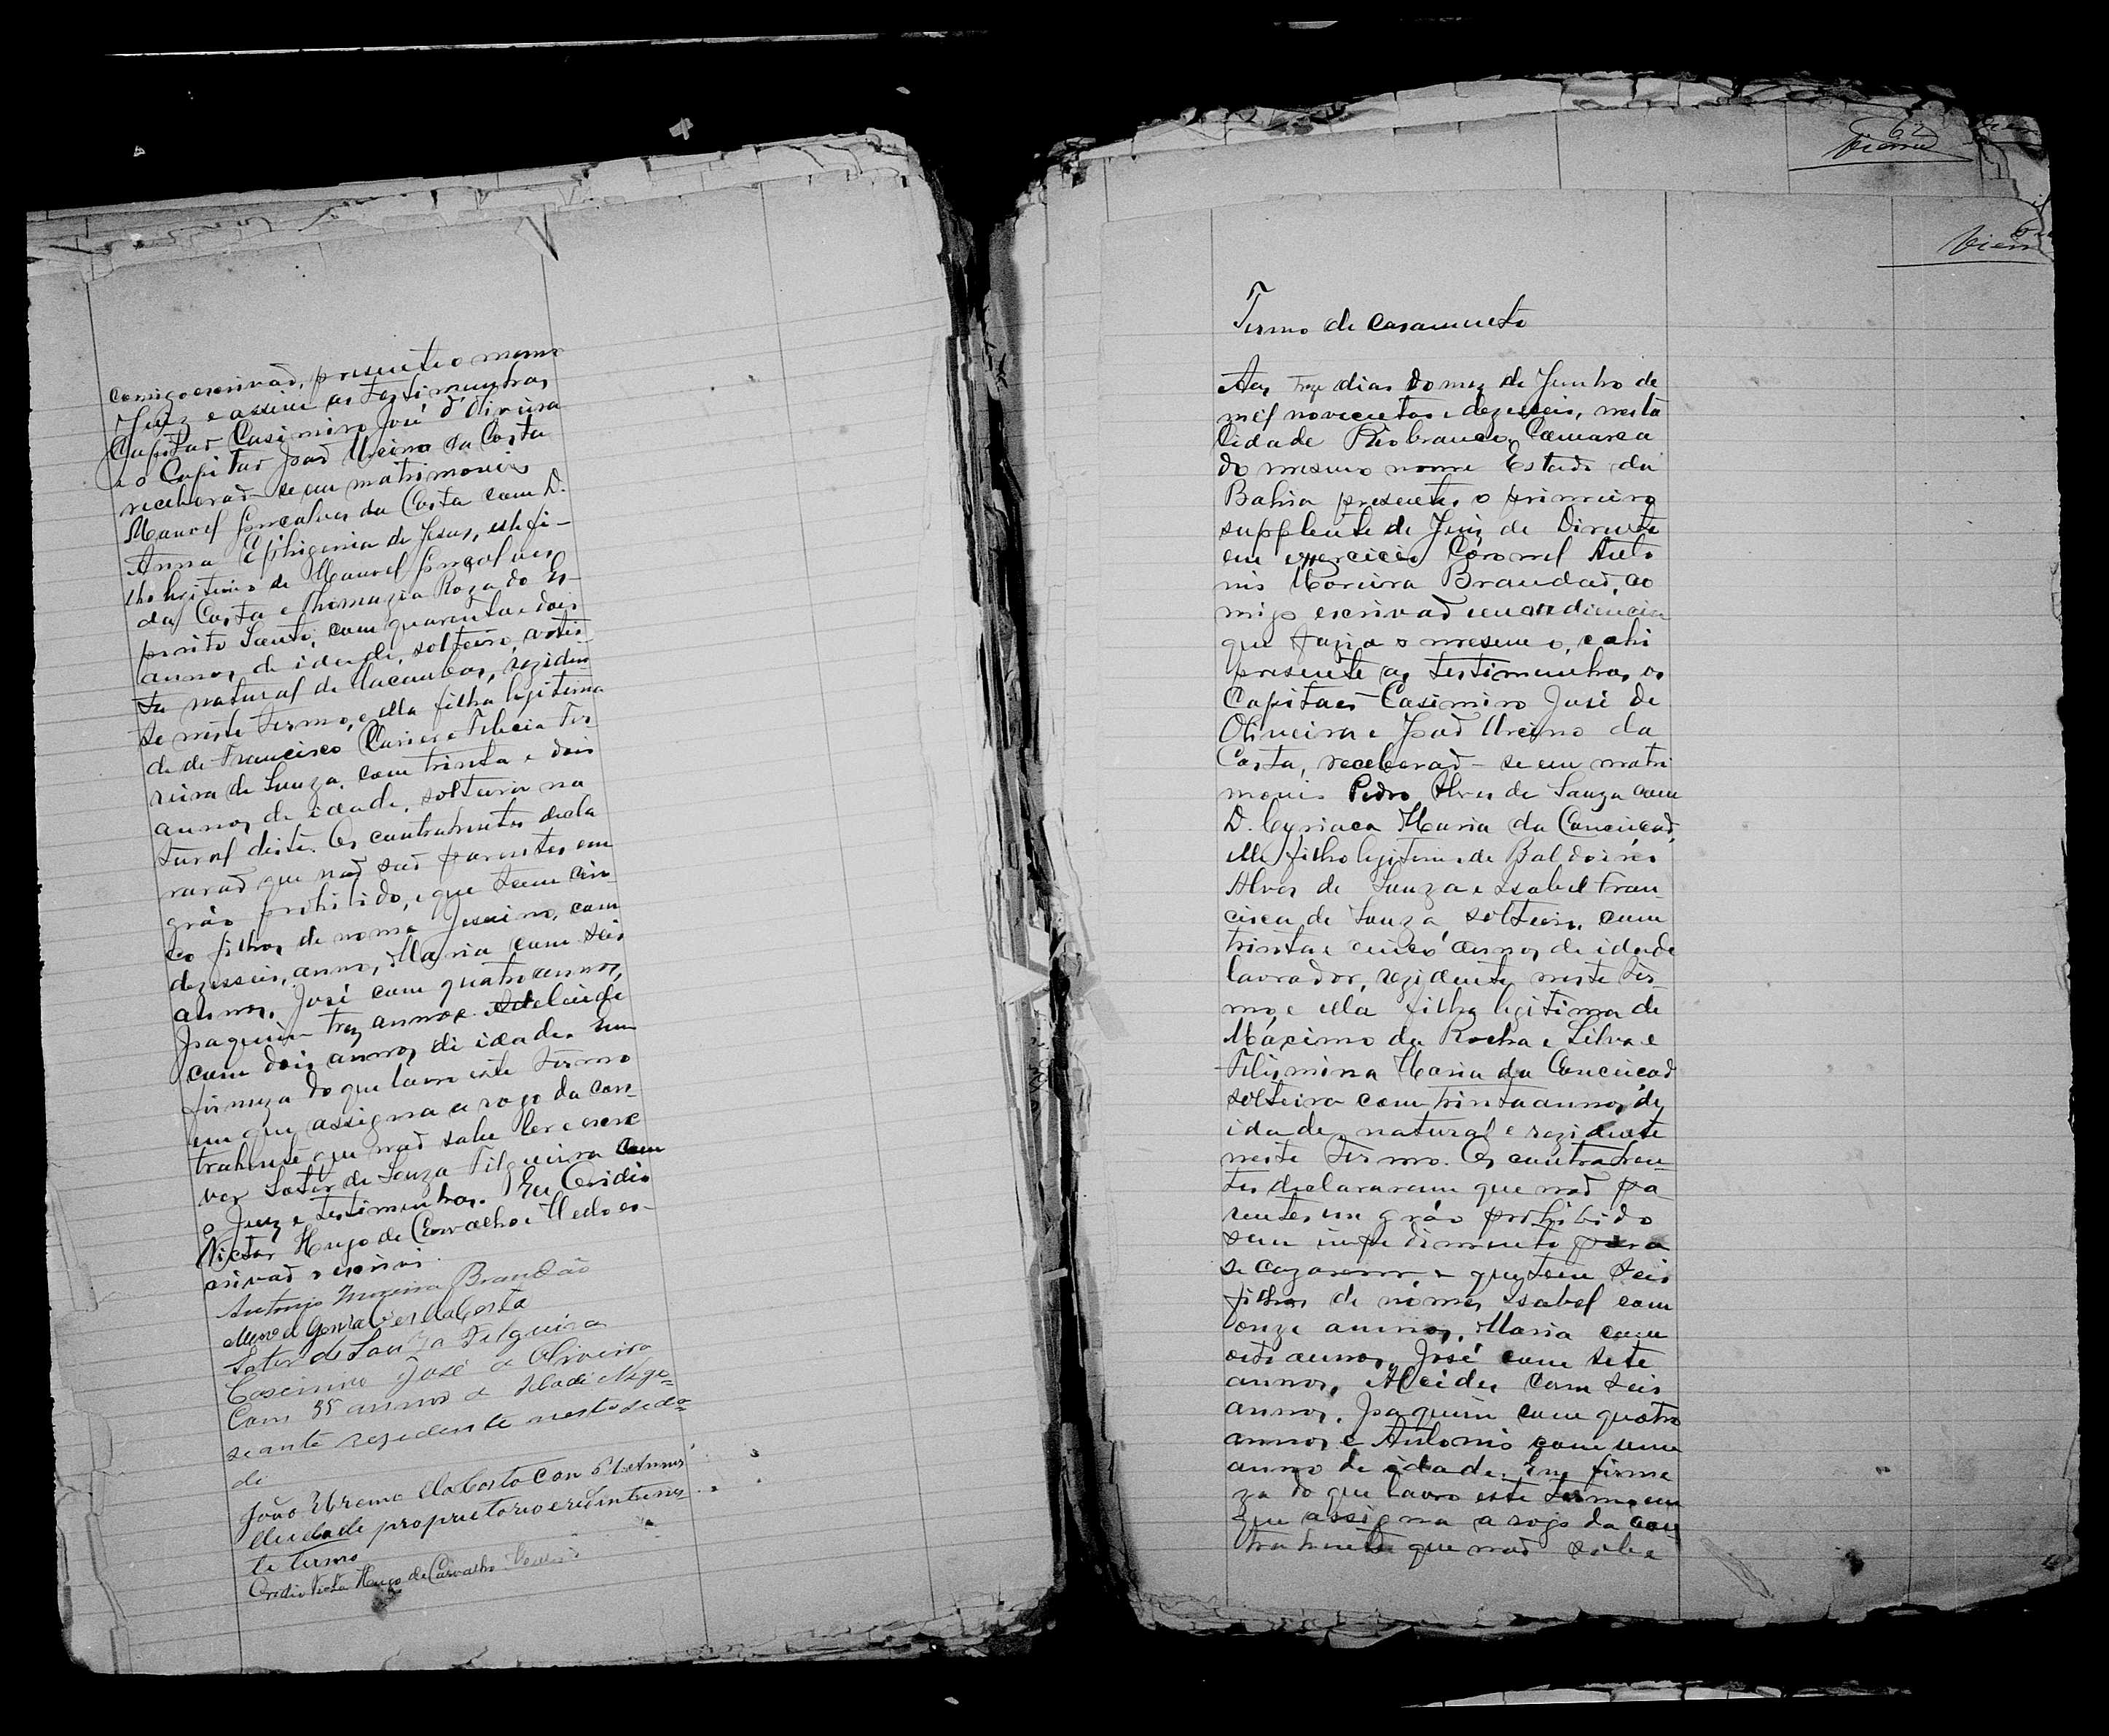 comigo escrivaõ, presente o mesmo
Juiz e assim as testimunhas
Capitaõ Casimiro José d'Oliveira
e o Capitaõ Joaõ Urcino da Costa
receberaõ-se em matrimonio
Manoel Gonçalves da Costa com D.
Anna Ephigenia de Jesus, elle fi-
lho legitimo de Manoel Gonçalves
da Costa e Thomazia Roza do Es-
pirito Santo, com quarenta e dois
annos de idade, solteiro, artis
ta natural de Macaubas, reziden
te neste termo, e ella filha legitima
de de Francisco Xavier e Felicia Fer
reira de Souza, com trinta e dois
annos de idade, solteira na
tural deste. Os contrahentes decla
raraõ que naõ saõ parentes em
gráo prohibido, e que tem cin
co filhos de nome Jesuino, com
dezesseis, annos, Maria com seis
annos, José com quatro annos,
Joaquim tres annos e Adelaide
com dois annos de idade. Em
firmeza do que lavro este termo
em que assigna a rogo da con-
trahente que naõ sabe ler e escre
ver Soter de Souza Filgueira com
o Juiz e testimunhas. Eu Ovidio
Victor Hugo de Carvalho e Mello es-
crivaõ o escrivi.
Antonio Moreira Brandão
Manoel Gonsalves da Costa
Soter de Souza Filgueira
Casimiro José de Oliveira
Com 35 annos de idade Nego-
siante rezidente nesta sida-
de
João Urcino da Costa con annos
de idade proprietario e rezidente nes-
te termo
Ovidio Victor Hugo de Carvalho Mello
62
Vieira
Vieir
Termo de casamento
Aos treze dias do mez de Junho de
mil novecentos e dezesseis, nesta
Cidade Rio branco, Comarca
do mesmo nome Estado da
Bahia presentes o primeiro
supplente de Juiz de Direito
em exercicio Coronel Anto
nio Moreira Brandaõ, co
migo escrivaõ em audiencia
que fazia o mesmo, e ahi
presente as testimunhas, os
Capitaes Casimiro José de
Oliveira e Joaõ Urcino da
Costa, receberaõ-se em matri
monio Pedro Alves de Souza com
D. Cyriaca Maria da Conceicaõ,
elle filho legitimo de Baldoino
Alves de Souza e Isabel Fran-
cisca de Souza, solteiro, com
trinta e cinco annos de idade
lavrador, rezidente neste ter-
mo, e ella filha legitima de
Máximo da Rocha e Silva e
Felismina Maria da Conceicaõ
solteira com trinta annos de
idade, natural e rezidente
neste termo. Os contrahen-
tes declararam que naõ pa-
rentes em gráo prohibido
sem impedimento para
se cazarem, e que tem seis
filhos de nomes Isabel com
onze annos, Maria com
oito annos, José com sete
annos, Alcides com seis
annos, Joaquim com quatro
annos e Antonio com um
anno de idade. Em firme
za do que lavro este termo em
que assigna a rogo da con
trahente que naõ sabe